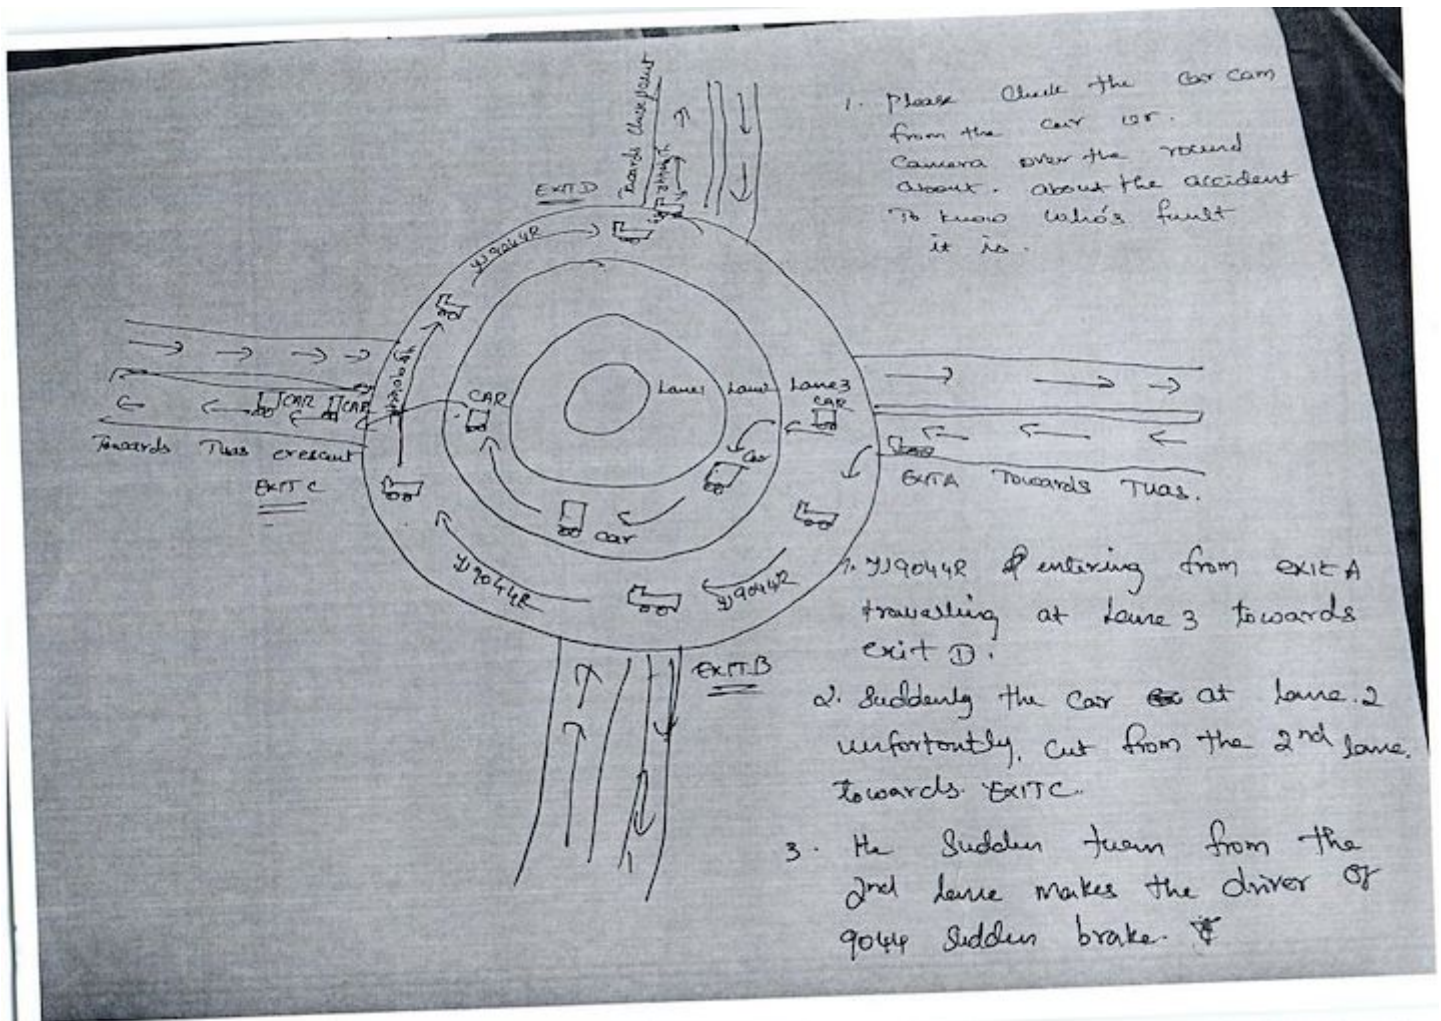 1. Please Check the Car Cam
from the car or.
Camera over the round
about. about the accident
To know who's fault
it is.
Towards Check point
EXIT D
YJ9044R
YJ9044R
YJ9044R
Lane1 Lane2 Lane3
CAR
CAR
CAR
CAR
Car
Car
Towards Tuas crescent
EXIT C
EXIT A Towards Tuas.
YJ9044R
YJ9044R
EXIT.B
1. YJ9044R entering from exit A
travelling at Lane 3 towards
exit D.
2. Suddenly the car at Lane.2
unfortuntly, cut from the 2nd lane.
towards EXIT C.
3. He Sudden turn from the
2nd Lane makes the driver of
9044 Sudden brake.